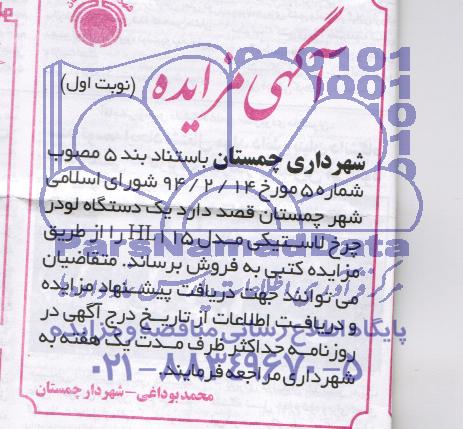 آگهی مزایده
(نوبت اول)
شهرداری چمستان باستناد بند ۵ مصوب
شماره ۵ مورخ ۹۴/۲/۱۴ شورای اسلامی
شهر چمستان قصد دارد یک دستگاه لودر
چرخ لاستیکی مدل HL۱۱۵ را از طریق
مزایده کتبی به فروش برساند. متقاضیان
می توانند جهت دریافت پیشنهاد مزایده
و دریافت اطلاعات از تاریخ درج آگهی در
روزنامه حداکثر ظرف مدت یک هفته به
شهرداری مراجعه فرمایند.
محمد بوداغی - شهردار چمستان
ParsNamadData
پایگاه اطلاع رسانی مناقصه و مزایده
۰۲۱-۸۸۳۴۹۶۷۰-۵